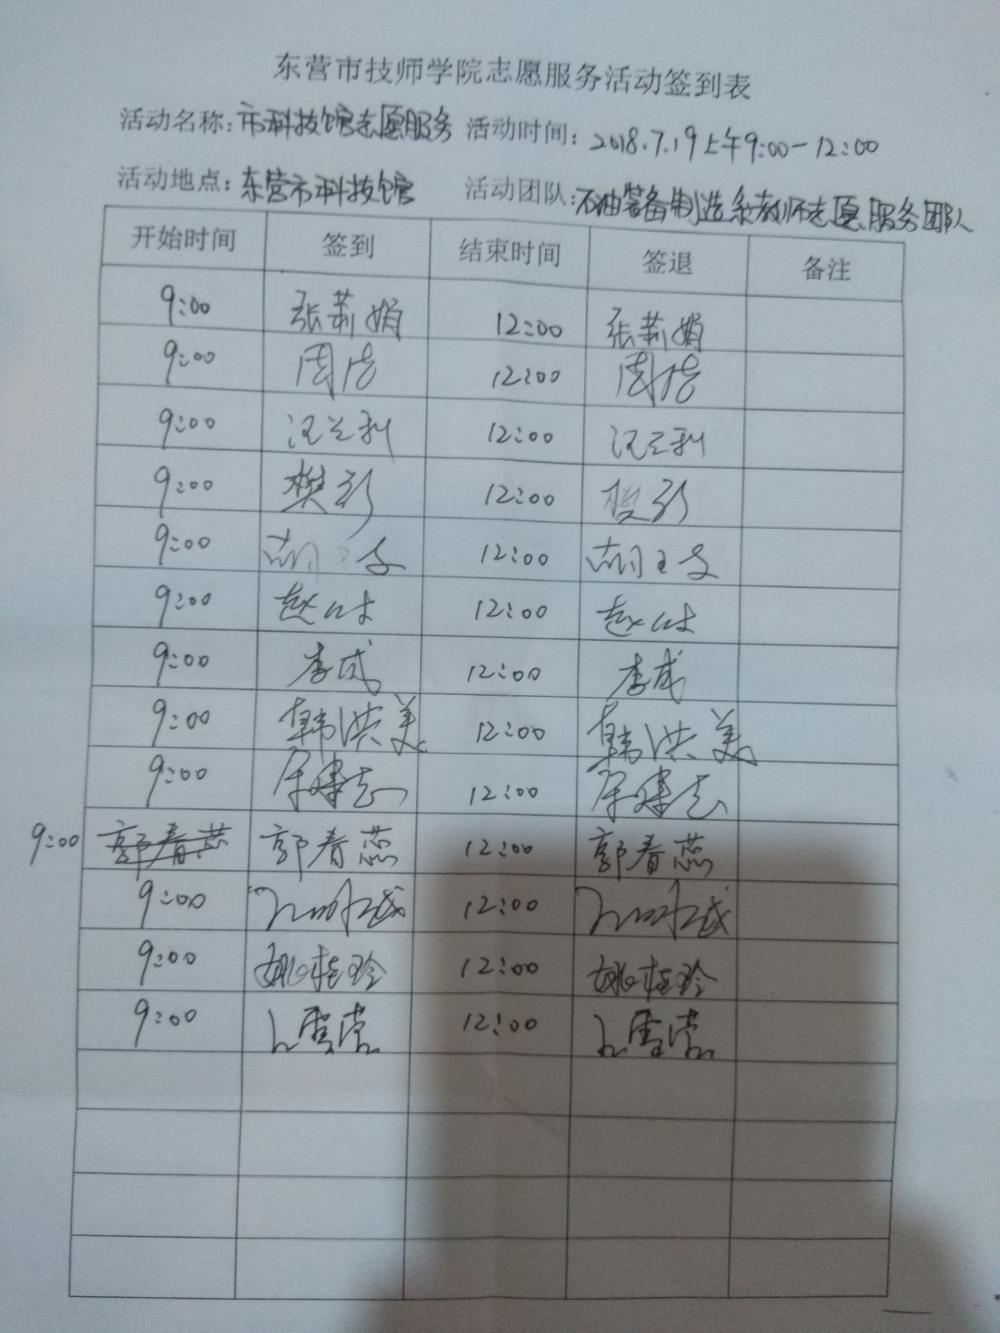 东营市技师学院志愿服务活动签到表
活动名称：市科技馆志愿服务 活动时间：2018.7.19上午9:00-12:00
活动地点：东营市科技馆 活动团队：石油装备制造系教师志愿服务团队
开始时间 签到 结束时间 签退 备注
9:00 张莉娟 12:00 张莉娟
9:00 周浩 12:00 周浩
9:00 汪兰利 12:00 汪兰利
9:00 樊彩 12:00 樊彩
9:00 12:00
9:00 赵 12:00 赵
9:00 李成 12:00 李成
9:00 韩洪美 12:00 韩洪美
9:00 建志 12:00 建志
9:00 郭春蕊 郭春蕊 12:00 郭春蕊
9:00 12:00
9:00 姚桂玲 12:00 姚桂玲
9:00 雪莹 12:00 雪莹